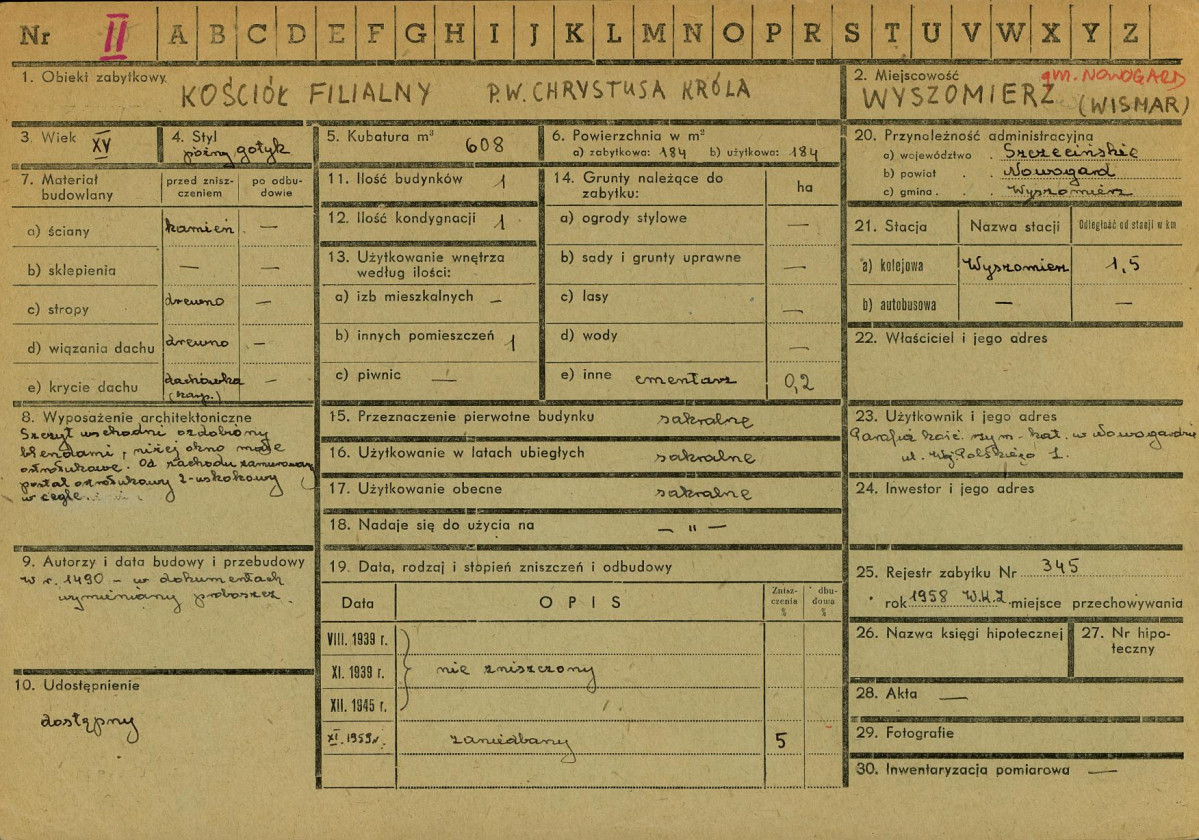 Nr II A B C D E F G H I J K L M N O P R S T U V W X Y Z
1. Obiekt zabytkowy.
KOŚCIÓŁ FILIALNY P.W. CHRYSTUSA KRÓLA
2. Miejscowość gm. NOWOGARD
WYSZOMIERZ (WISMAR)
3. Wiek XV
4. Styl
późny gotyk
5. Kubatura m³ 608
6. Powierzchnia w m²
a) zabytkowa: 184 b) użytkowa: 184
7. Materiał budowlany
przed znisz-
czeniem
po odbu-
dowie
a) ściany kamień —
b) sklepienia — —
c) stropy drewno —
d) wiązania dachu drewno —
e) krycie dachu dachówka —
(karp.)
8. Wyposażenie architektoniczne
Szczyt wschodni ozdobiony
blendami, niżej okno małe
ostrołukowe. Od zachodu zamurowany
portal ostrołukowy 2-uskokowy
w cegle.
9. Autorzy i data budowy i przebudowy
W r. 1490 – w dokumentach
wymieniany proboszcz.
10. Udostępnienie
dostępny
11. Ilość budynków 1
12. Ilość kondygnacji 1
13. Użytkowanie wnętrza
według ilości:
a) izb mieszkalnych —
b) innych pomieszczeń 1
c) piwnic —
14. Grunty należące do
zabytku:
ha
a) ogrody stylowe —
b) sady i grunty uprawne —
c) lasy —
d) wody —
e) inne cmentarz 0,2
15. Przeznaczenie pierwotne budynku sakralne
16. Użytkowanie w latach ubiegłych sakralne
17. Użytkowanie obecne sakralne
18. Nadaje się do użycia na — " —
19. Data, rodzaj i stopień zniszczeń i odbudowy
Data OPIS
Znisz-
czenia
%
dbu-
dowa
%
VIII. 1939 r.
XI. 1939 r. nie zniszczony
XII. 1945 r.
XI. 1959 r. zaniedbany 5
20. Przynależność administracyjna
a) województwo . Szczecińskie
b) powiat . . Nowogard
c) gmina . . Wyszomierz
21. Stacja Nazwa stacji Odległość od stacji w km
a) kolejowa Wyszomierz 1,5
b) autobusowa — —
22. Właściciel i jego adres
23. Użytkownik i jego adres
Parafia kość. rzym.-kat. w Nowogardzie
ul. Woj. Polskiego 1.
24. Inwestor i jego adres
25. Rejestr zabytku Nr 345
rok 1958 W.K.Z. miejsce przechowywania
26. Nazwa księgi hipotecznej
27. Nr hipo-
teczny
28. Akta —
29. Fotografie
30. Inwentaryzacja pomiarowa —